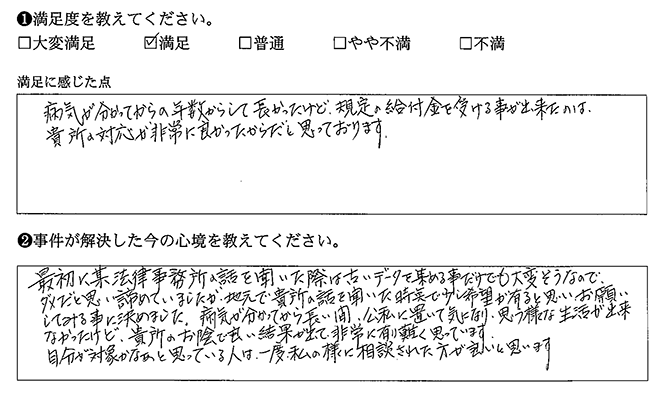 ❶満足度を教えてください。
□大変満足 ☑満足 □普通 □やや不満 □不満
満足に感じた点
病気が分かってからの年数からして長かったけど、規定の給付金を受ける事が出来たのは、
貴所の対応が非常に良かったからだと思っております。
❷事件が解決した今の心境を教えてください。
最初に某法律事務所の話を聞いた際は古いデータを集める事だけでも大変そうなので、
ダメだと思い諦めていましたが、地元で貴所の話を聞いた時点で少し希望が有ると思いお願い
してみる事に決めました。病気が分かってから長い間、公私に置いて気になり、思う様な生活が出来
なかったけど、貴所のお陰で良い結果が出て非常に有り難く思っています。
自分が対象かなぁと思っている人は、一度私の様に相談された方が良いと思います